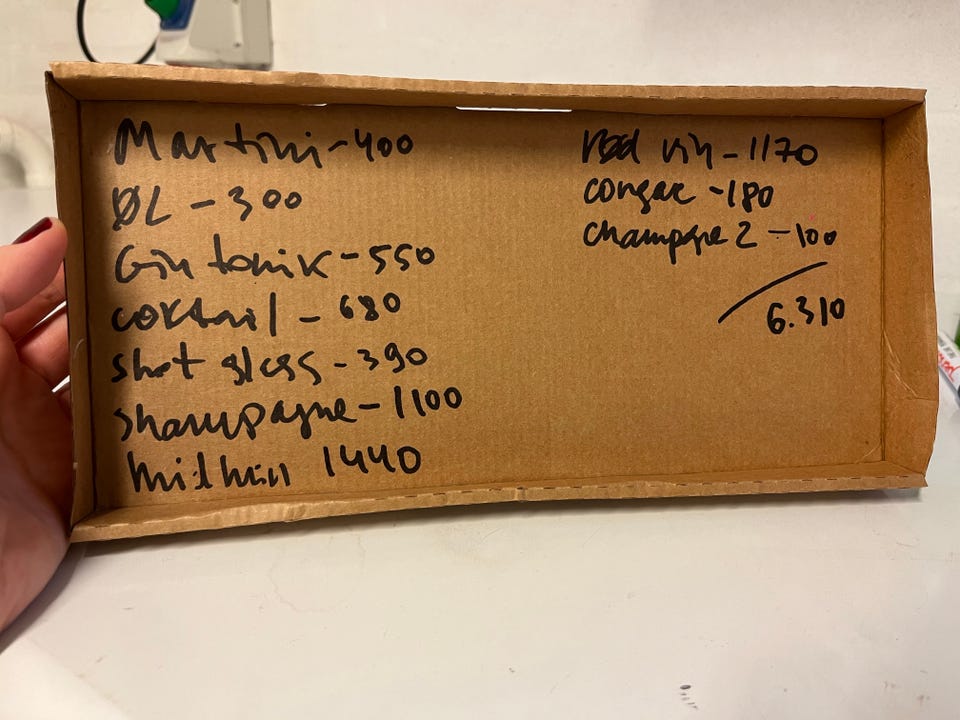 Martini-400
ØL - 300
Gin tonik - 550
coktail - 680
shot glass - 390
shampagne - 1100
1440
rød vin - 1170
congac - 180
champagne 2 - 100
6.310